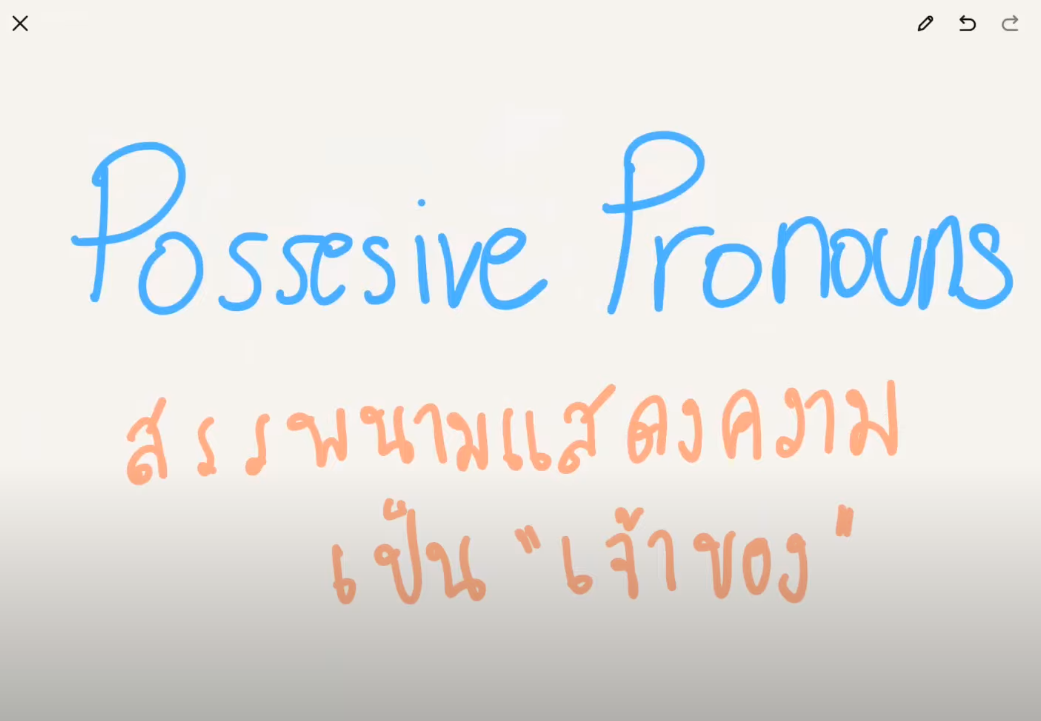 Possesive Pronouns
สรรพนามแสดงความ
เป็น "เจ้าของ"